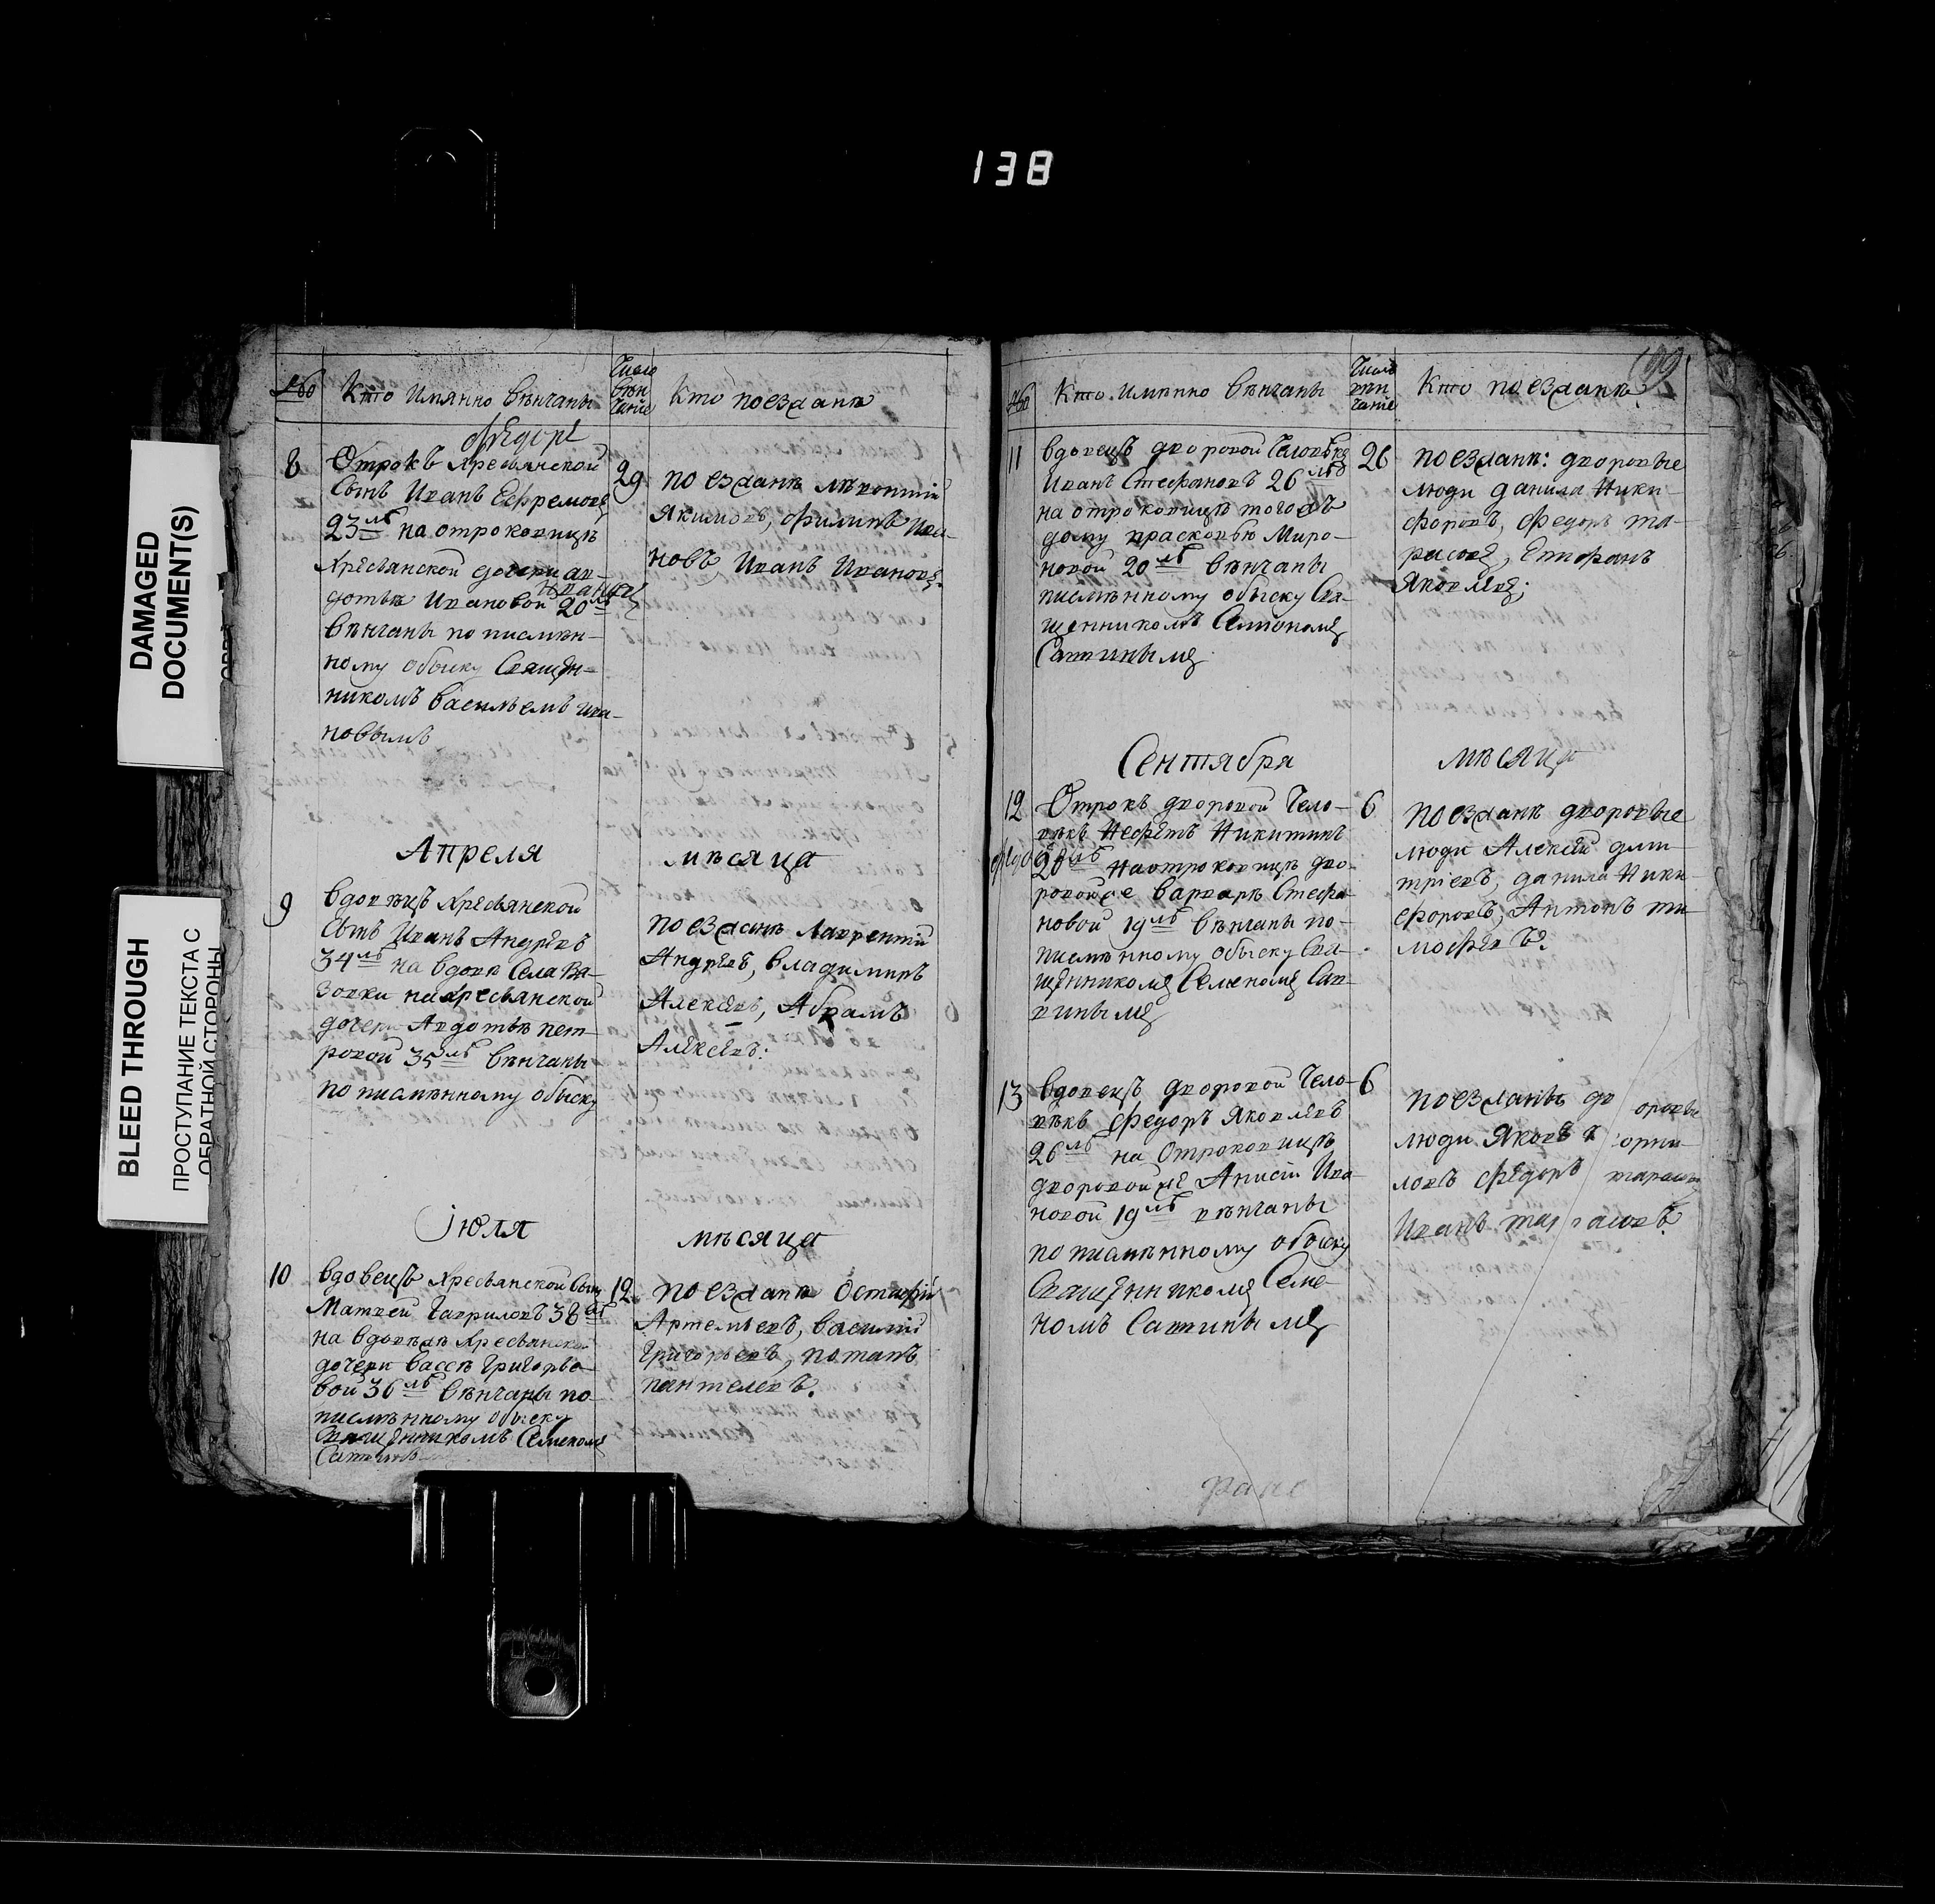 138
DAMAGED
DOCUMENT(S)
BLEED THROUGH
ПРОСТУПАНИЕ ТЕКСТА С
ОБРАТНОЙ СТОРОНЫ
Кто Имянно Вѣнчаны
Число
вѣн
чание
Кто поезданѣ
8
Отрокъ Кресьянской
Сынъ Иванъ Ефремовъ
23 лѣ на отроковицѣ
Кресьянской дочери ав-
дотьѣ Ивановой 20 лѣ
Вѣнчаны по писмѣн-
ному обыску Священ-
никомъ Васильемъ ива-
новымъ
29
поезданѣ
Якимовъ, Филипъ ива-
новъ, Иванъ Ивановъ.
Апреля
мѣсяца
9
вдовѣцъ Кресьянской
Сынъ Иванъ Андреевъ
34 лѣ на вдовѣ Села Вя-
зовки на Кресьянской
дочери Авдотьѣ пет-
ровой 35 лѣ Вѣнчаны
по писмѣнному обыску
поезданѣ Лаврентий
Андреевъ, Владимиръ
Алексевъ, Абрамъ
Алексевъ:
Июля
мѣсяца
10
вдовецъ Кресьянской Сынъ
Матвей Гавриловъ 38 лѣ
на вдовѣ Кресьянской
дочери Вассѣ Григорье-
вой 36 лѣ Вѣнчаны по-
писмѣнному обыску
Священникомъ Семеномъ
12
поезданѣ
Артемьевъ, Василий
Григорьевъ, потапъ
пантелевъ.
199
Кто имянно Вѣнчаны
Число
вѣн
чание
Кто поезданѣ
11
вдовецъ дворовой Человѣкъ
Иванъ Стефановъ 26 лѣ
на отроковицѣ тогожъ
дому прасковью Миро-
новой 20 лѣ Вѣнчаны
писмѣнному обыску Свя-
щенникомъ Семеономъ
Сатинымъ
26
поезданѣ: дворовые
люди данила Ники-
форовъ, Федоръ та-
расовъ, Стефанъ
Яковлевъ;
Сентября
мѣсяца
12
Отрокъ дворовой Чело-
вѣкъ Нефетъ Никитинъ
20 лѣ на отроковицѣ дво-
ровой же Варварѣ Стефа-
новой 19 лѣ Вѣнчаны по-
писмѣнному обыску Свя-
щенникомъ Семеномъ
6
поезданѣ дворовые
люди Алексѣй дми-
триевъ, данила Ники-
форовъ, Антонъ ти-
мофеевъ.
13
вдовецъ дворовой Чело-
вѣкъ Федоръ Яковлевъ
26 лѣ на Отроковицѣ
дворовой же Анисіи Ива-
новой 19 лѣ вѣнчаны
по писмѣнному обыску
Священникомъ Семе-
номъ Сатинымъ
6
поезданѣ дворовые
люди Яковъ корни-
ловъ Федоръ тарасовъ
Иванъ тарасовъ.